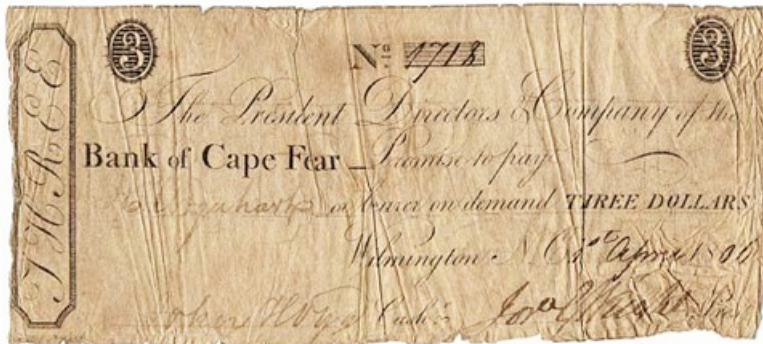 3 No. 1718 3
THREE
The President Directors & Company of the
Bank of Cape Fear Promise to pay
or bearer on demand THREE DOLLARS
Wilmington N.C. 1st April 1806
John Hogg Cashr. Jos. Wright Prest